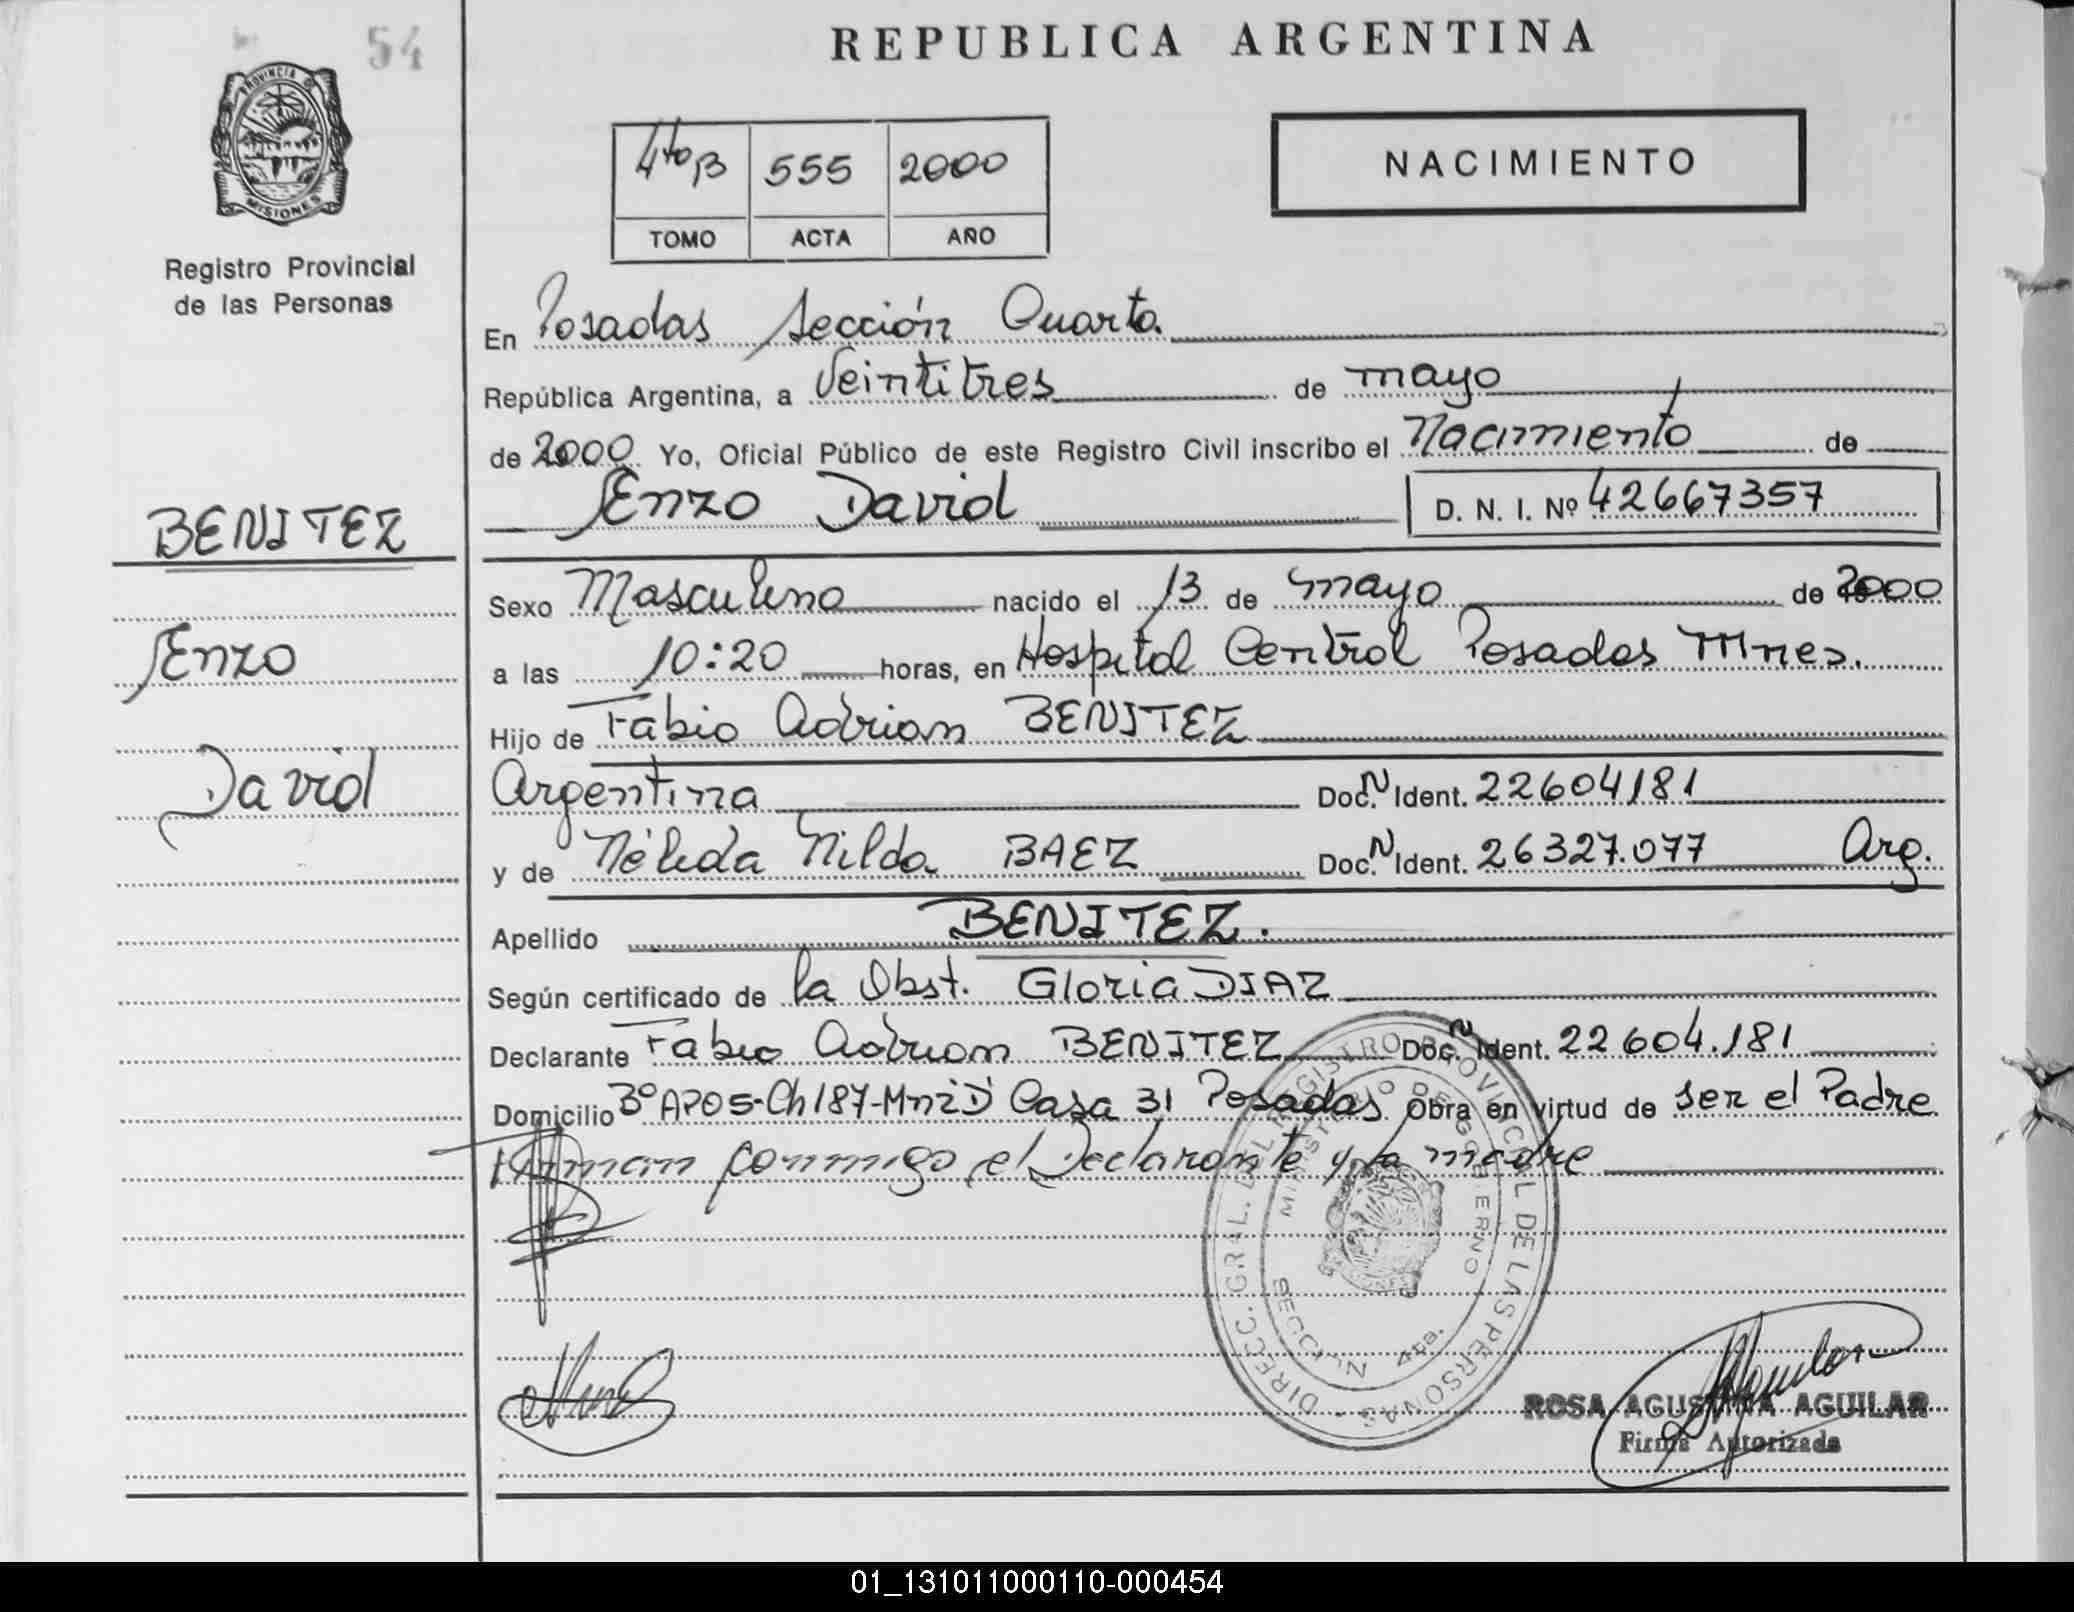 54
REPUBLICA ARGENTINA
PROVINCIA DE
MISIONES
Registro Provincial
de las Personas
4to B 555 2000
TOMO ACTA AÑO
NACIMIENTO
En Posadas Sección Cuarta
República Argentina, a Veintitres de mayo
de 2000 Yo, Oficial Público de este Registro Civil inscribo el Nacimiento de
Enzo David D. N. I. Nº 42667357
BENITEZ
Enzo
David
Sexo Masculino nacido el 13 de mayo de 2000
a las 10:20 horas, en Hospital Central Posadas Mnes.
Hijo de Fabio Adrian BENITEZ
Argentina Doc. N Ident. 22604181
y de Nélida Nilda BAEZ Doc. N Ident. 26327.077 Arg.
Apellido BENITEZ.
Según certificado de la Obst. Gloria DIAZ
Declarante Fabio Adrian BENITEZ Doc. N Ident. 22604.181
Domicilio Bº APOS-Ch187-Mz2D Casa 31 Posadas Obra en virtud de ser el Padre
Firman conmigo el Declarante y la madre
DIRECC. GRAL. DEL REGISTRO PROVINCIAL DE LAS PERSONAS
MINISTERIO DE GOBIERNO
SECCION 4ta.
ROSA AGUSTINA AGUILAR
Firma Autorizada
01_131011000110-000454